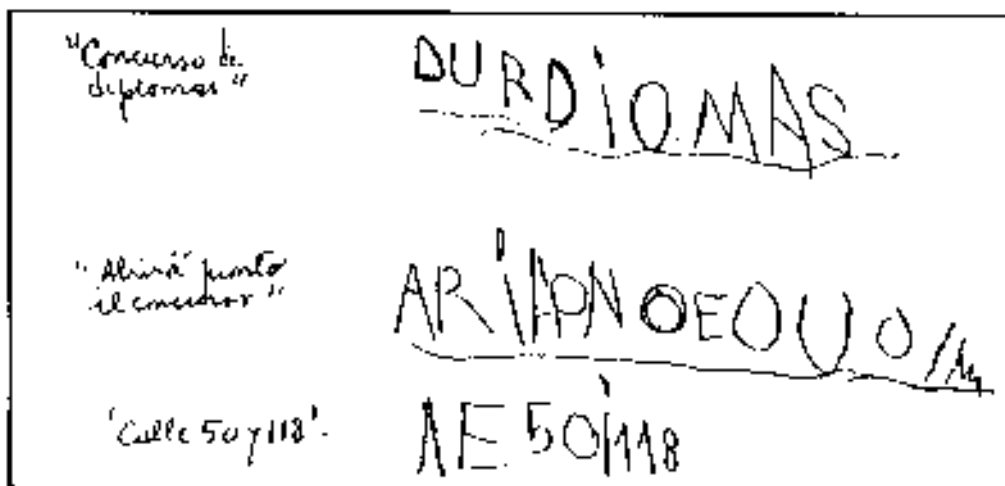 "Concurso de
diplomas"
DURDiOMAS
"Abrirá pronto
el concurso"
"Calle 50 y 118".
AE50i118